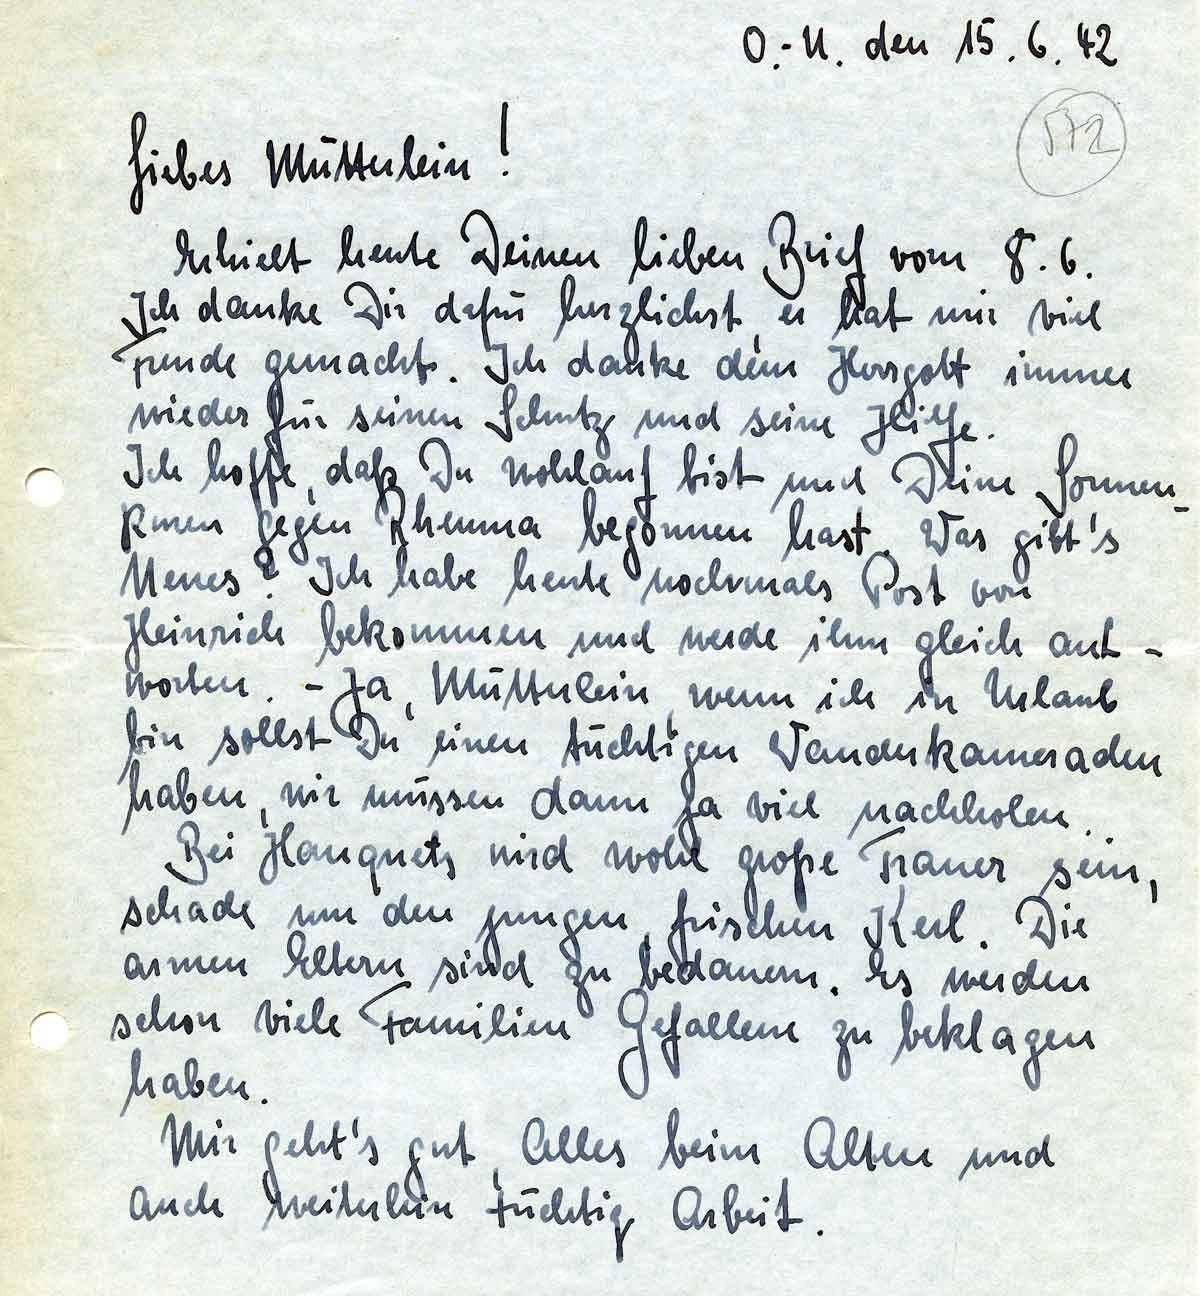 O.-U. den 15.6.42
572
Liebes Mütterlein!
Erhielt heute Deinen lieben Brief vom 8.6.
Ich danke Dir dafür herzlichst, er hat mir viel
Freude gemacht. Ich danke dem Herrgott immer
wieder für seinen Schutz und seine Hilfe.
Ich hoffe, daß Du wohlauf bist und Deine Sonnen-
kuren gegen Rheuma begonnen hast. Was gibt's
Neues? Ich habe heute nochmals Post von
Heinrich bekommen und werde ihm gleich ant-
worten. - Ja, Mütterlein, wenn ich in Urlaub
bin sollst Du einen tüchtigen Wanderkameraden
haben, wir müssen dann ja viel nachholen.
Bei Hauquets wird wohl große Trauer sein,
schade um den jungen, frischen Kerl. Die
armen Eltern sind zu bedauern. Es werden
schon viele Familien Gefallene zu beklagen
haben.
Mir geht's gut, Alles beim Alten und
auch weiterhin tüchtig Arbeit.